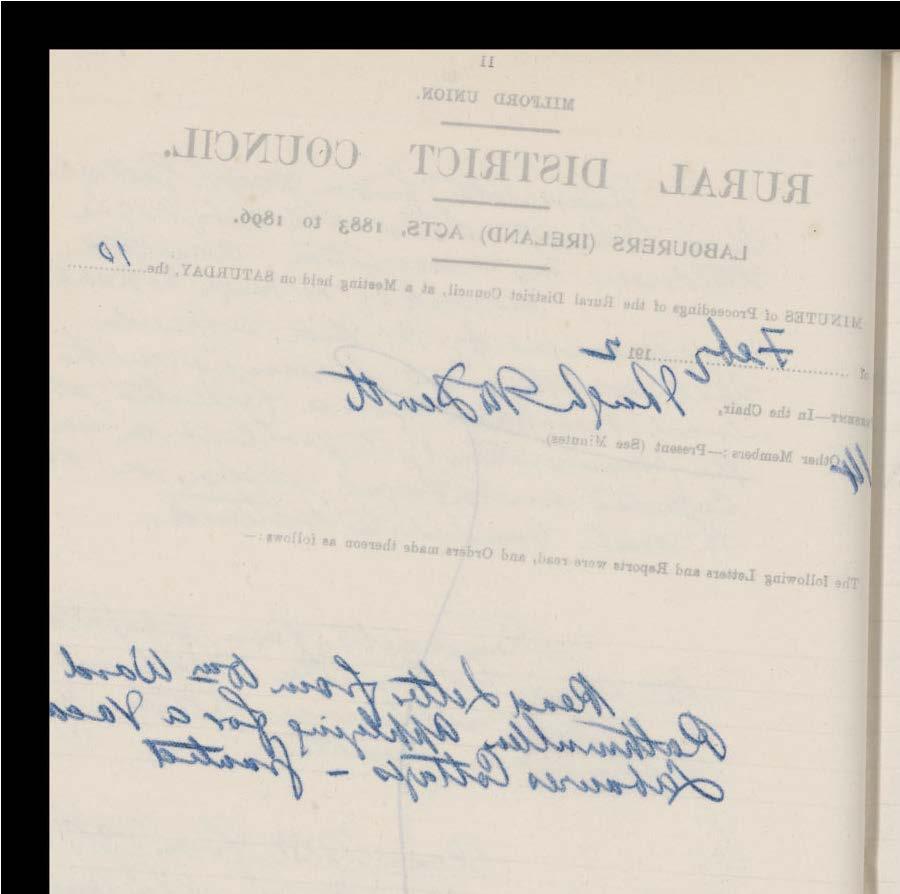 11
MILFORD UNION.
RURAL DISTRICT COUNCIL.
LABOURERS (IRELAND) ACTS, 1883 to 1896.
MINUTES of Proceedings of the Rural District Council, at a Meeting held on SATURDAY, the 10
of Febry 191 2
PRESENT—In the Chair, Hugh McDevitt
Other Members:—Present (See Minutes)
The following Letters and Reports were read, and Orders made thereon as follows:—
Read Letter from Wm Ward
Rathmullen applying for a Vaca
Labourers Cottage - Granted